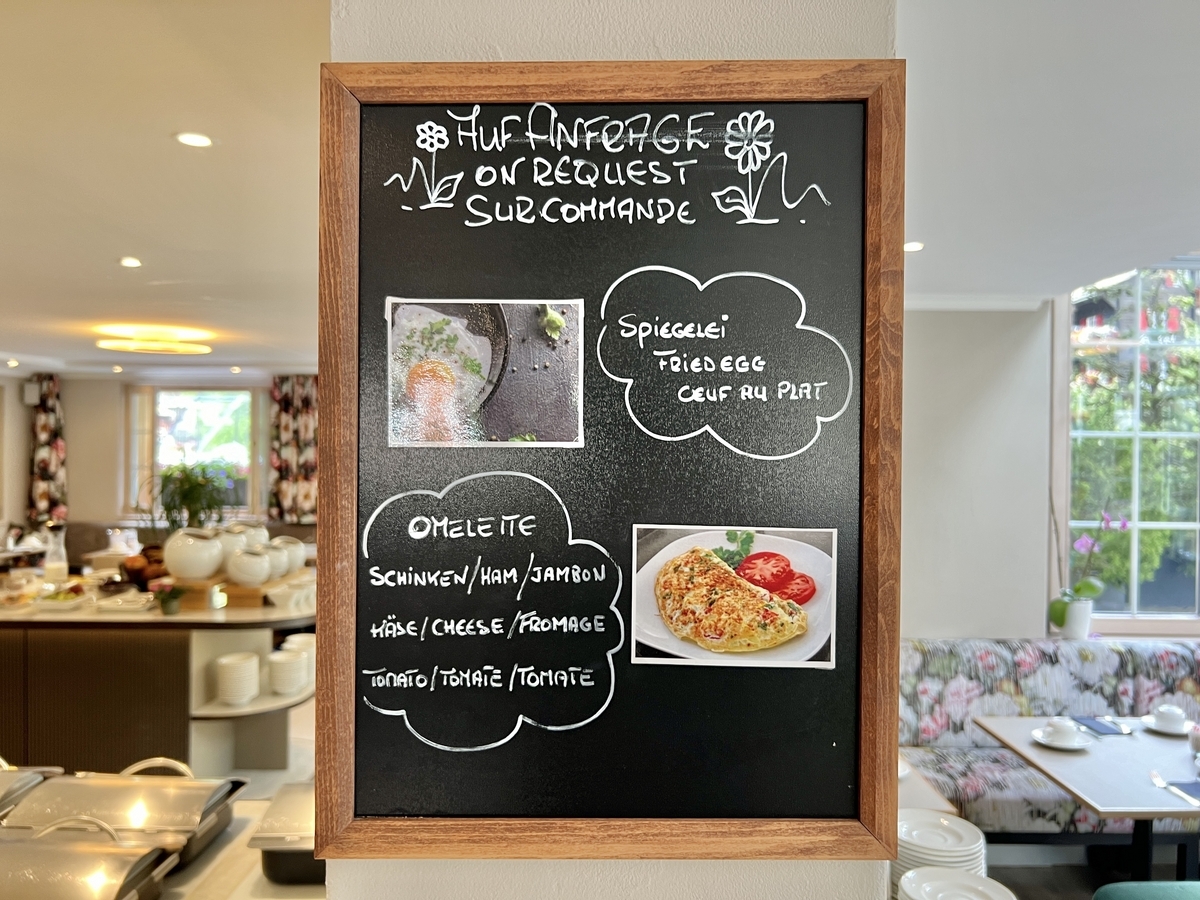 AUF ANFRAGE
ON REQUEST
SUR COMMANDE
SPIEGELEI
FRIED EGG
ŒUF AU PLAT
OMELETTE
SCHINKEN/HAM/JAMBON
KÄSE/CHEESE/FROMAGE
TOMATO/TOMATE/TOMATE